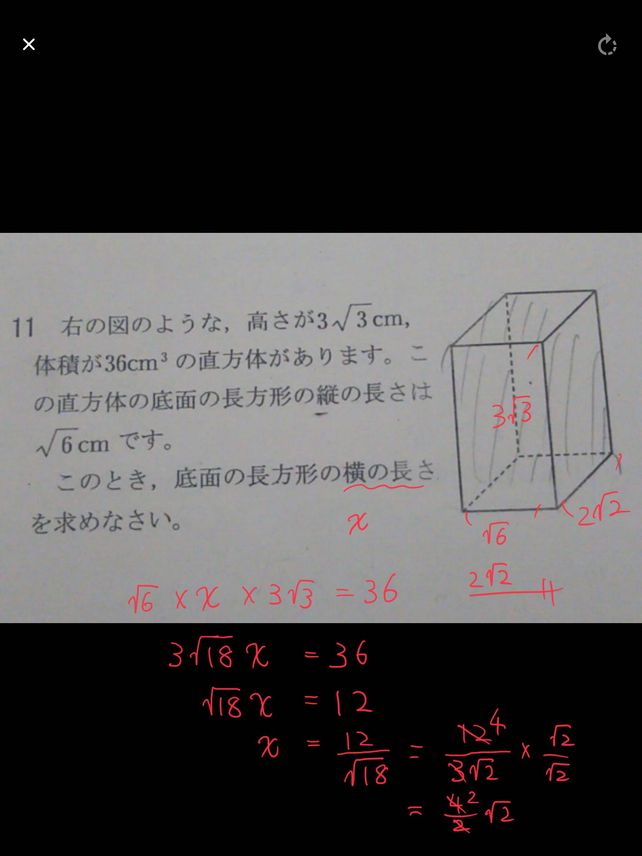 11 右の図のような，高さが3√3cm，
体積が36cm³ の直方体があります。こ
の直方体の底面の長方形の縦の長さは
√6cm です。
このとき，底面の長方形の横の長さ
を求めなさい。
x
3√3
√6
2√2
√6 × x × 3√3 = 36
2√2
3√18 x = 36
√18 x = 12
x = 12/√18 = 12 4/3√2 × √2/√2
= 4 2/2 √2